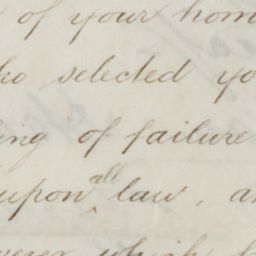 of your hom
ho selected yo
ing of failure
upon all law, an
which